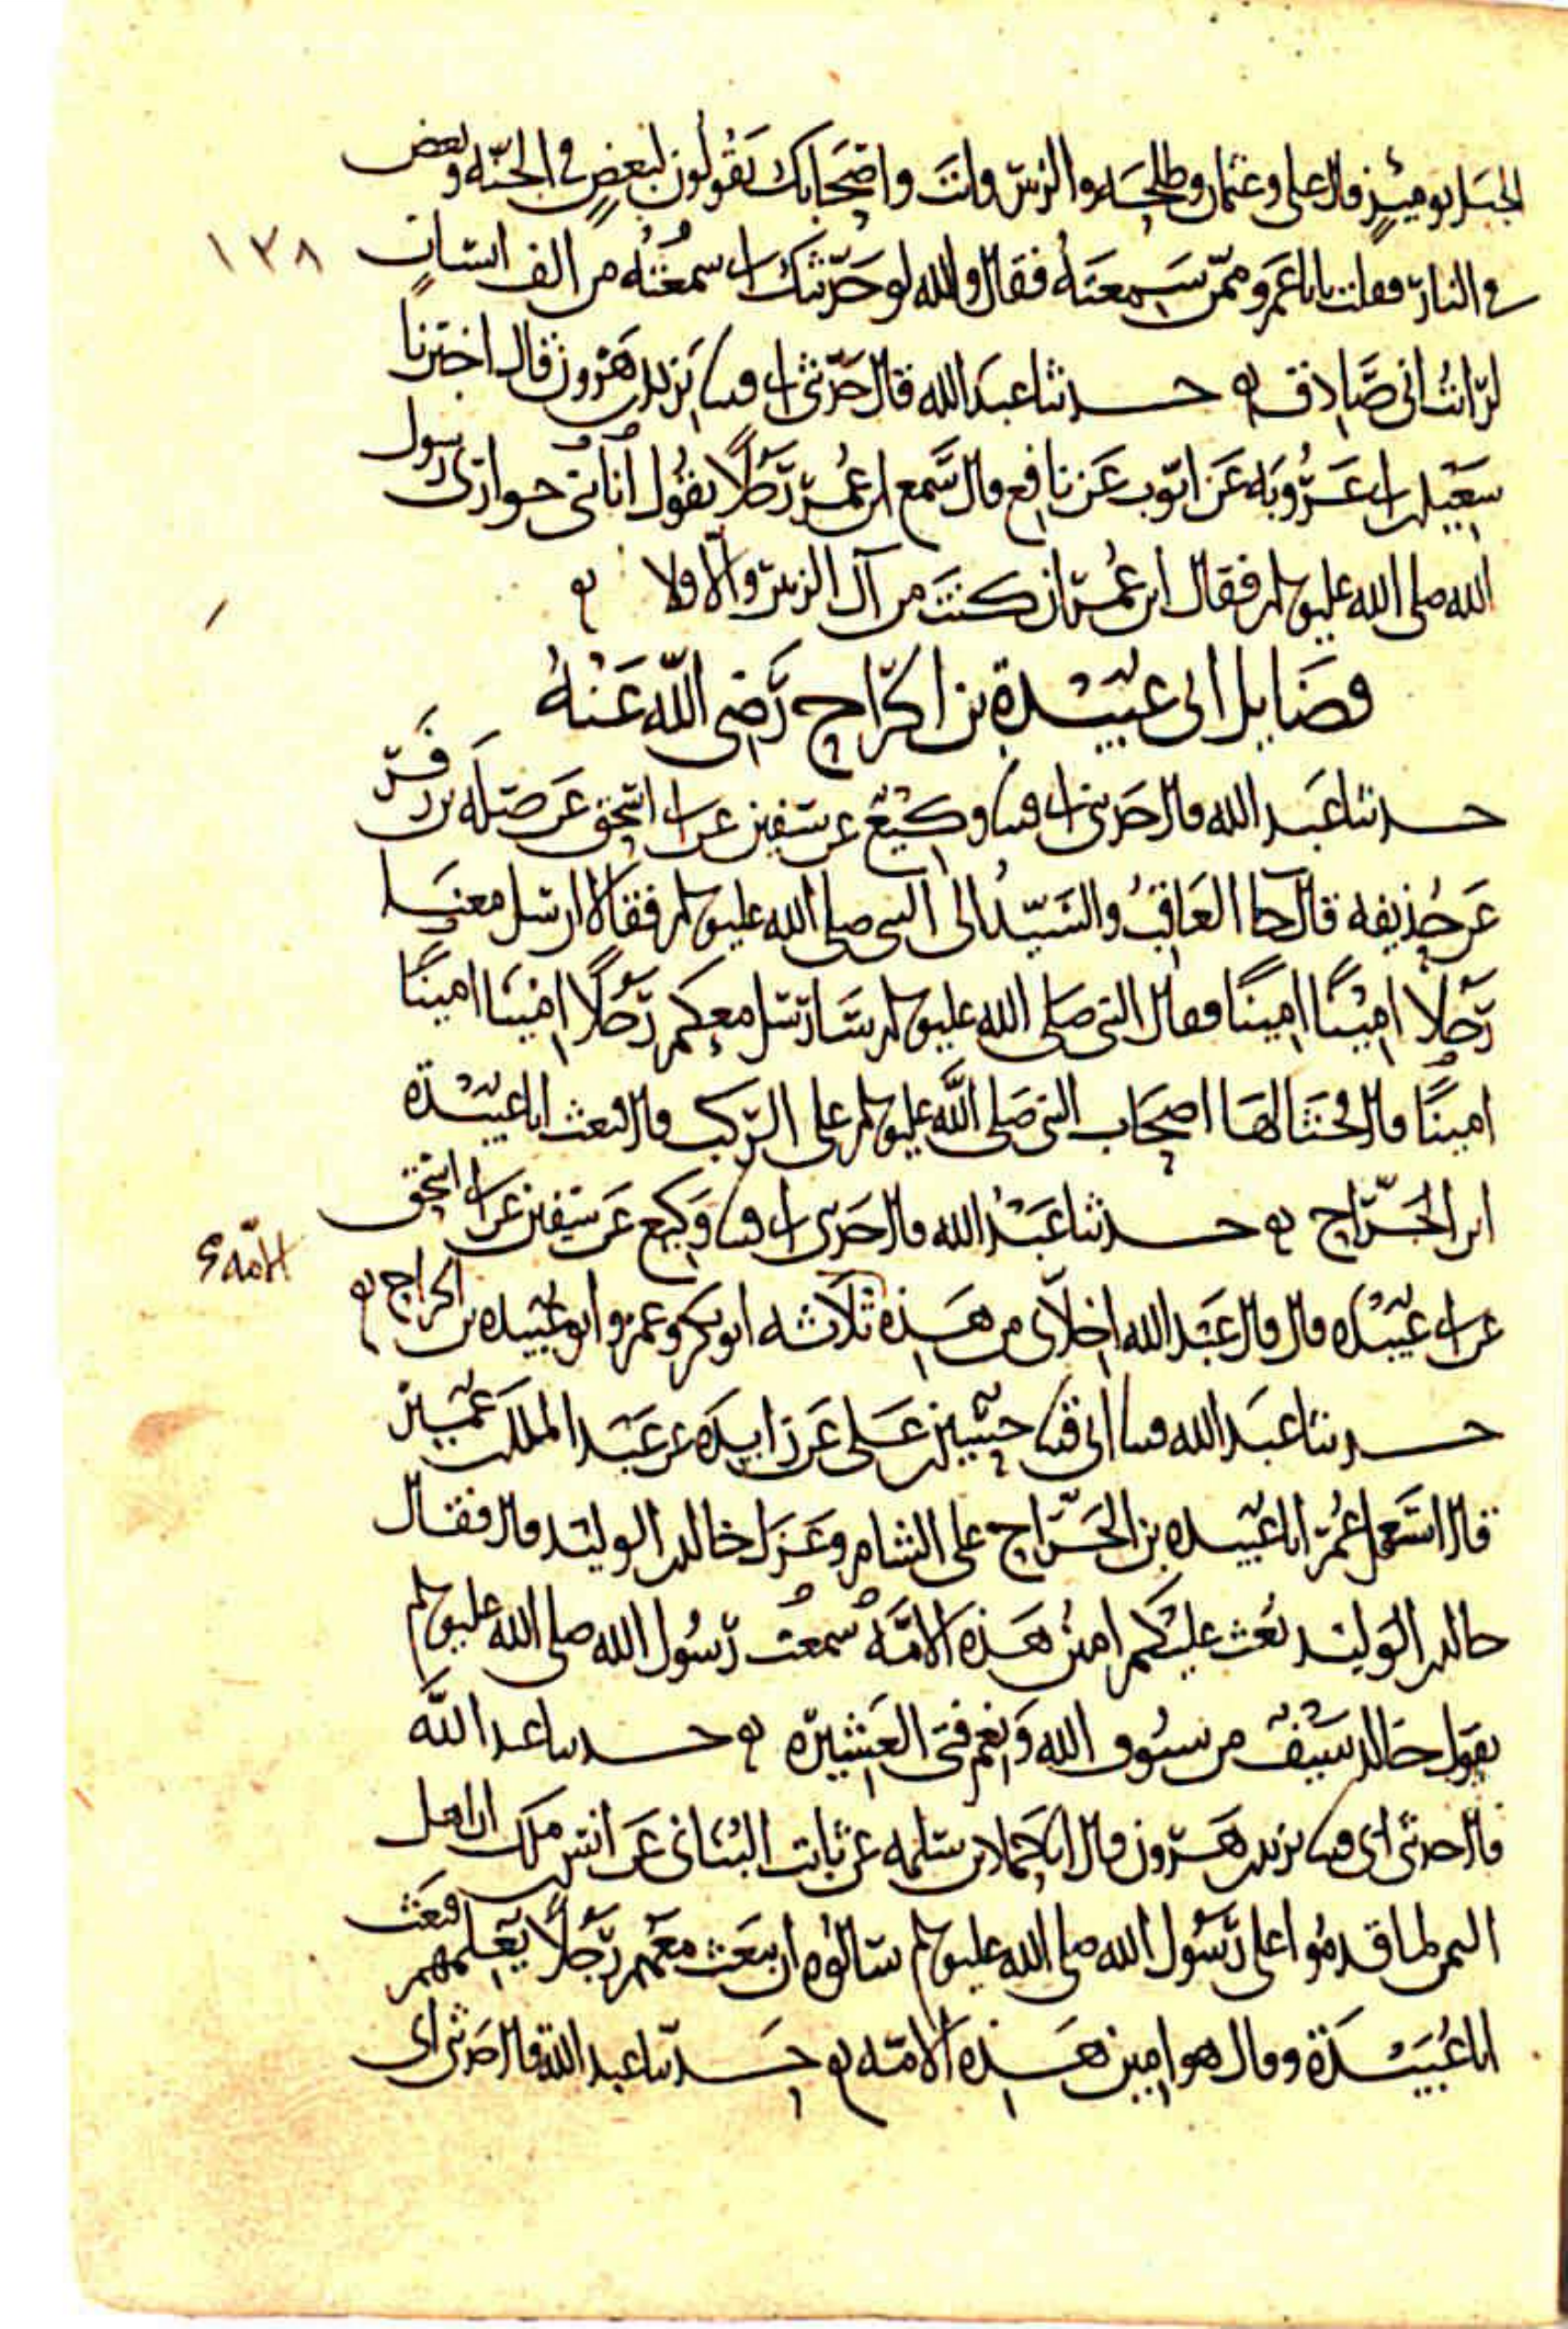 الجبل يومئذ قال علي وعثمان وطلحة والزبير وانت واصحابك يقولون لبعض في الجنة وبعض
في النار فقلت يابا عمرو ممن سمعته فقال والله لو حدثتك اني سمعته من الف انسان
١٣٨
لرايت اني صادق حدثنا عبد الله قال حدثني ابي قثنا يزيد بن هرون قال اخبرنا
سعيد بن ابي عروبه عن ايوب عن نافع قال سمع ابن عمر رجلا يقول انا ابن حواري رسول
الله صلى الله عليه وسلم فقال ابن عمر ان كنت من آل الزبير والا فلا
فضايل ابي عبيدة بن الجراح رضي الله عنه
حدثنا عبد الله قال حدثني ابي قثنا وكيع عن سفين عن ابي اسحق عن صله بن زفر
عن حذيفه قال جا العاقب والسيد الى النبي صلى الله عليه وسلم فقالا ارسل معنا
رجلا امينا امينا فقال النبي صلى الله عليه وسلم سارسل معكم رجلا امينا امينا
امينا قال فجثا لها اصحاب النبي صلى الله عليه وسلم على الركب قال فبعث ابا عبيدة
ابن الجراح حدثنا عبد الله قال حدثني ابي قثنا وكيع عن سفين عن ابي اسحق
عن ابي عبيده قال قال عبد الله اخلاي من هذه ثلاثه ابو بكر وعمر وابو عبيده بن الجراح
الامه
حدثنا عبد الله قثنا ابي قثنا حسين بن علي عن زايده عن عبد الملك بن عمير
قال استعمل عمر ابا عبيده بن الجراح على الشام وعزل خالد بن الوليد قال فقال
خالد بن الوليد بعث عليكم امين هذه الامه سمعت رسول الله صلى الله عليه وسلم
يقول خالد سيف من سيوف الله ونعم فتى العشيره حدثنا عبد الله
قال حدثني ابي قثنا يزيد بن هرون قال انا حماد بن سلمه عن ثابت البناني عن انس بن ملك ان اهل
اليمن لما قدموا على رسول الله صلى الله عليه وسلم سالوه ان يبعث معهم رجلا يعلمهم فبعث
ابا عبيدة وقال هو امين هذه الامه حدثنا عبد الله قال حدثني ابي